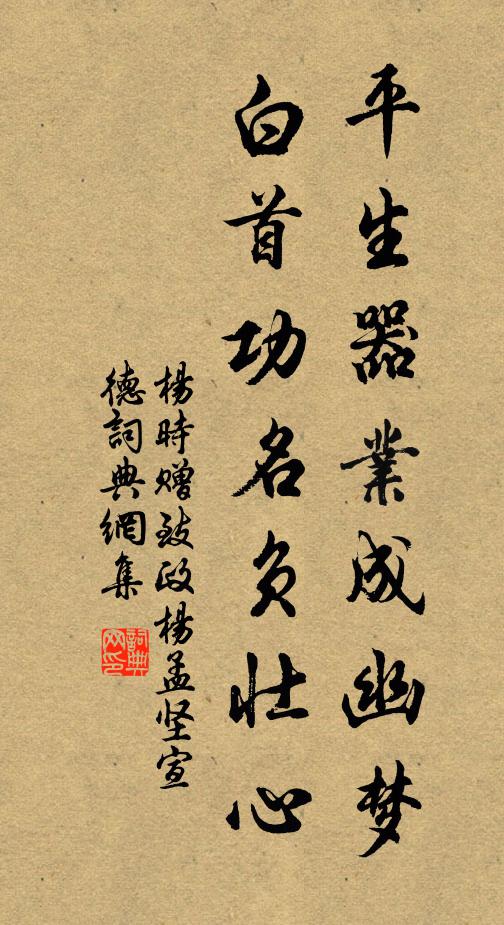 平生器業成幽梦
白首功名负壮心
楊時赠致政楊孟坚宣
德詞典網集
詞典网印